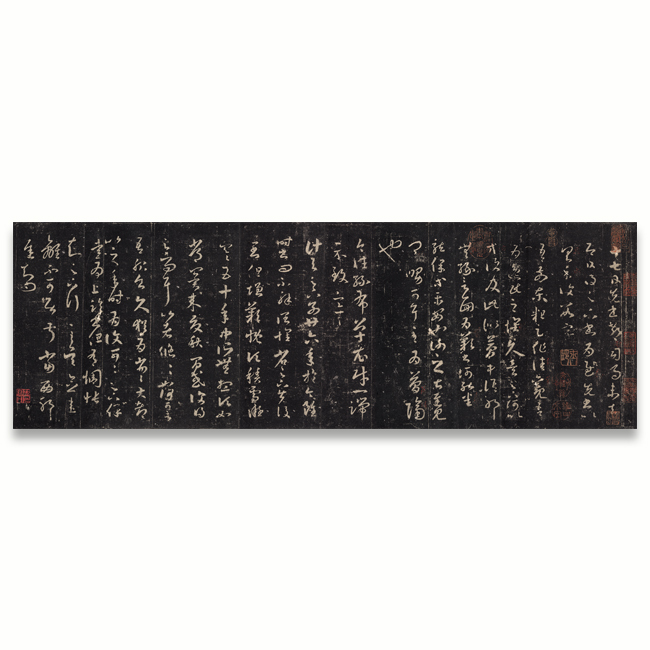 十七日先書郗司馬未去
即日得足下書為慰先書以
具示復數字
吾前東粗足作佳觀吾
為逸民之懷久矣足下何以
等復及此似夢中語耶
無緣言面為歎書何能悉
龍保等平安也謝之甚遲見
卿舅可耳至為簡隔
也
今往絲布單衣財一端
示致意
計與足下別廿六年於今雖
時書問不解闊懷省足下先後
二書但增歎慨頃積雪凝
寒五十年中所無想頃如
常冀來夏秋間或復得足
下問耳比者悠悠如何可言
吾服食久猶為劣劣大都
比之年時為復可可足下保
愛為上臨書但有惆悵
知足下行至吳念違
離不可居叔當西耶
遲知問